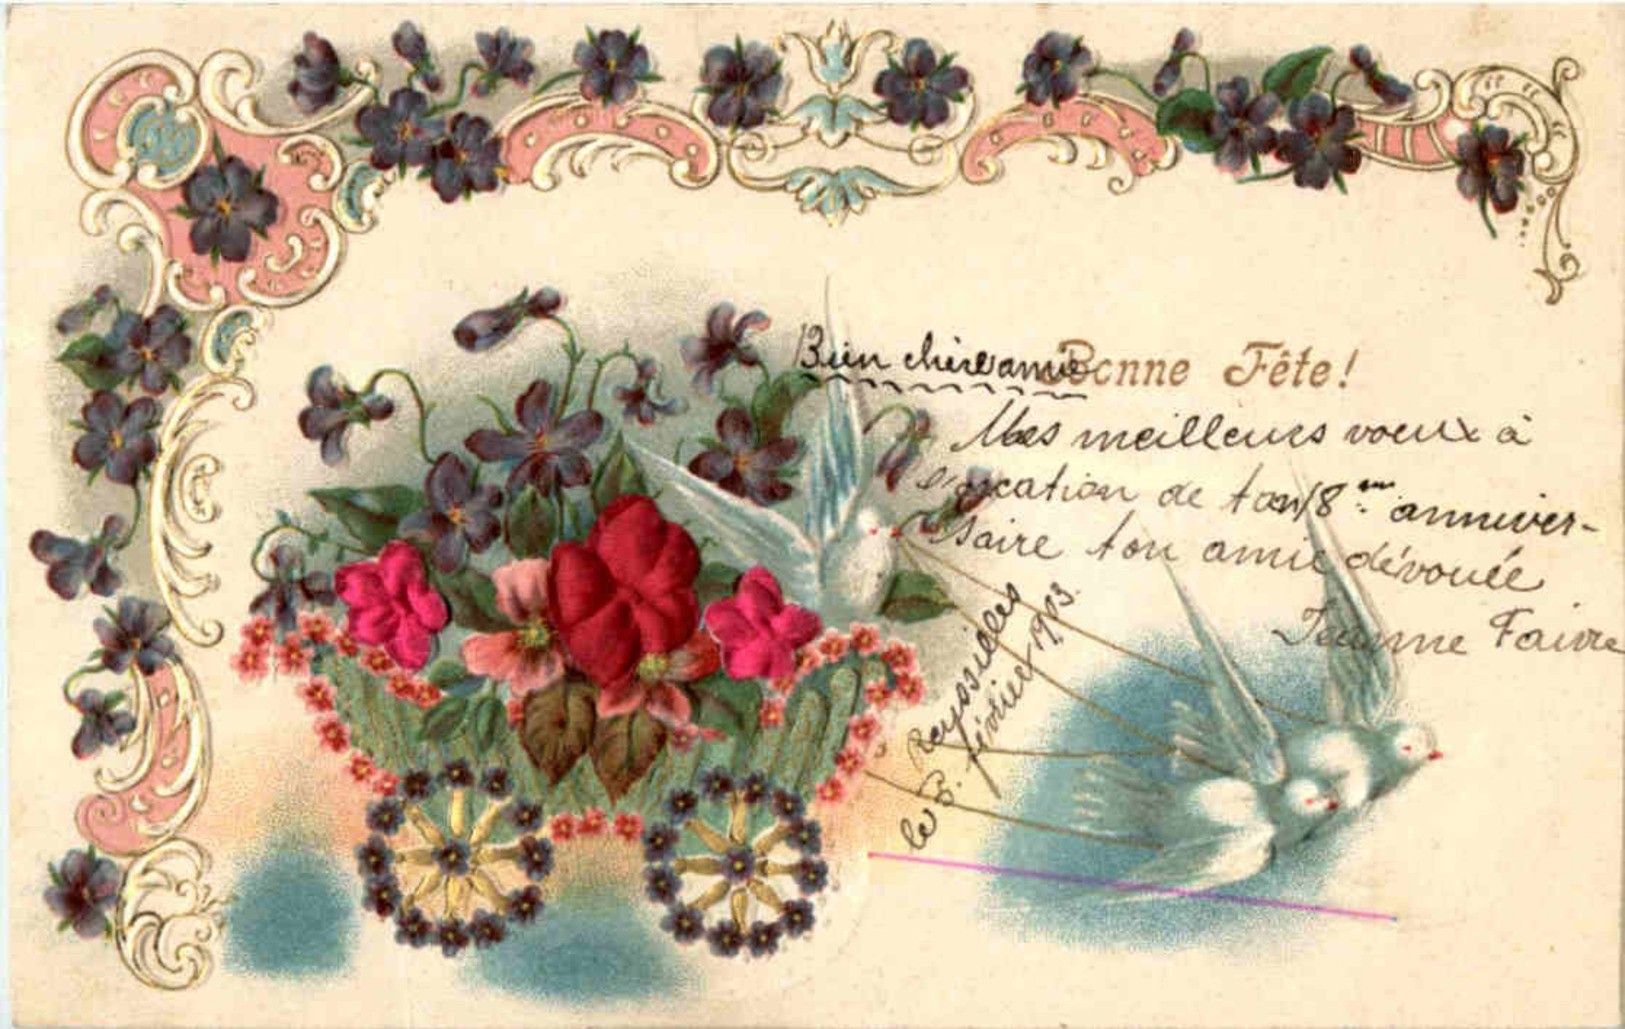 Bonne Fête!
Bien chère amie
Mes meilleurs voeux à
l'occation de ton 18ème anniver-
saire ton amie dévouée
Jeanne Faivre
Reyssieles
le 3. février 1903.